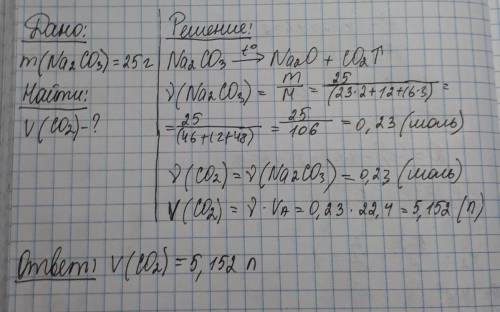 Дано:
m(Na2CO3)=25г
Найти:
V(CO2)-?
Решение:
Na2CO3 t°→ Na2O + CO2↑
ν(Na2CO3) = m/M = 25/(23·2+12+(6·3) =
= 25/(46+12+48) = 25/106 = 0,23 (моль)
ν(CO2) = ν(Na2CO3) = 0,23 (моль)
V(CO2) = ν · VA = 0,23 · 22,4 = 5,152 (л)
Ответ: V(CO2) = 5,152 л